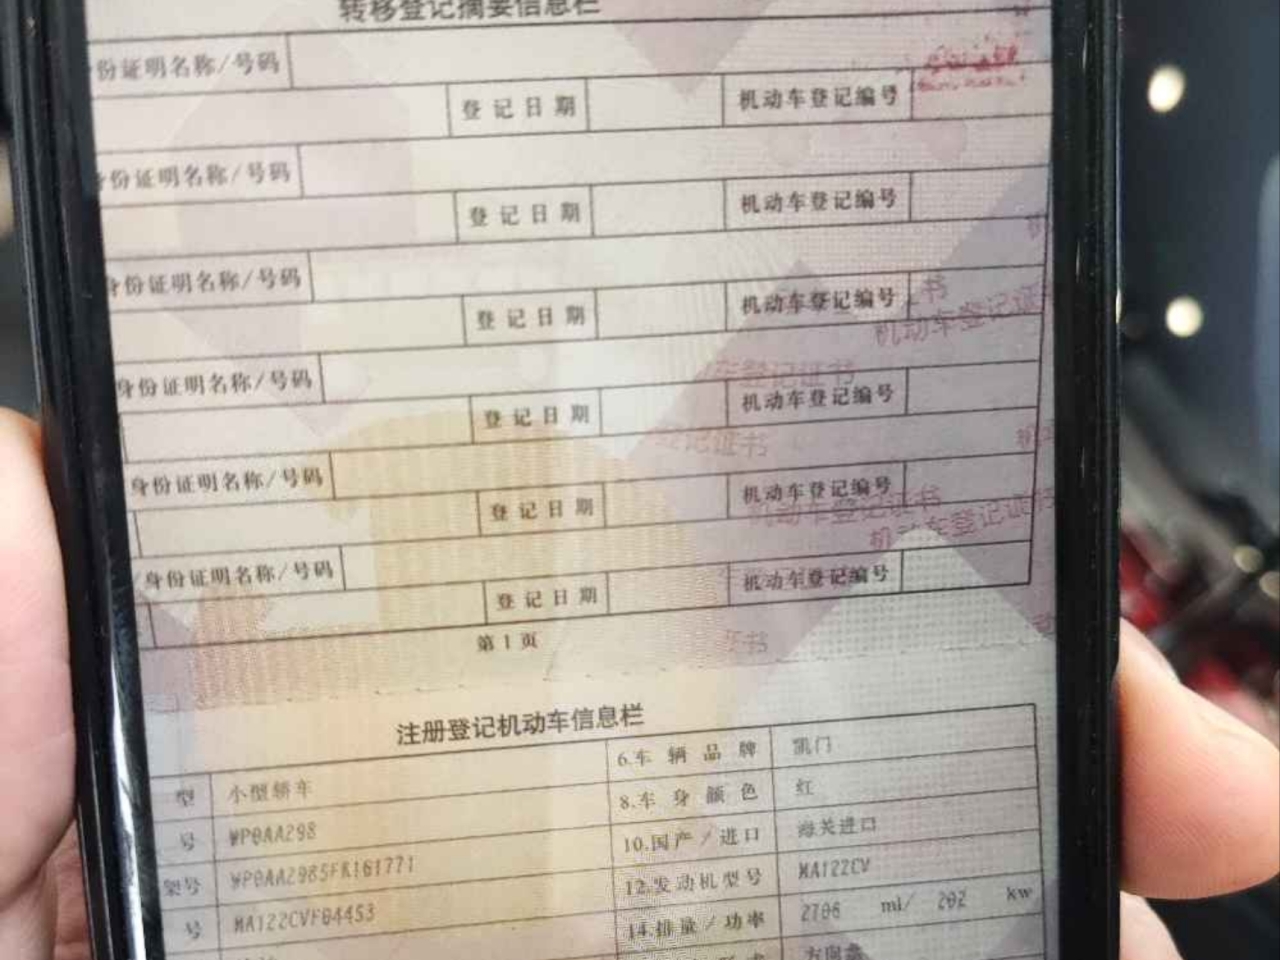 转移登记摘要信息栏
份证明名称/号码
登记日期 机动车登记编号
份证明名称/号码
登记日期 机动车登记编号
身份证明名称/号码
登记日期 机动车登记编号
书
机动车登记证
车登记证书
身份证明名称/号码
登记日期 机动车登记编号
登记证书
身份证明名称/号码
登记日期 机动车登记编号
机动车登记证书
机动车登记证书
身份证明名称/号码
登记日期 机动车登记编号
第1页
注册登记机动车信息栏
型 小型轿车 6.车辆品牌 凯门
号 WP0AA298 8.车身颜色 红
架号 WP0AA2985FK161771 10.国产/进口 海关进口
号 MA122CVF04453 12.发动机型号 MA122CV
14.排量/功率 2706 ml/ 202 kw
方向盘